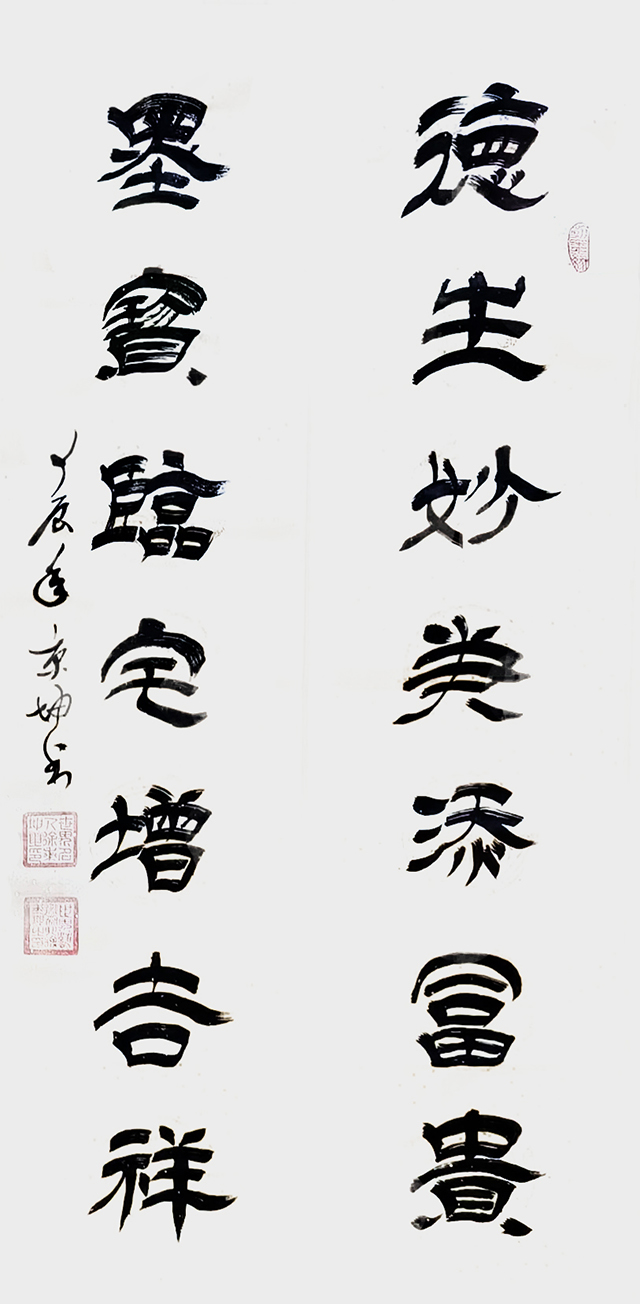 德生妙美添冨貴
墨寳臨宅增吉祥
辰年京坤書